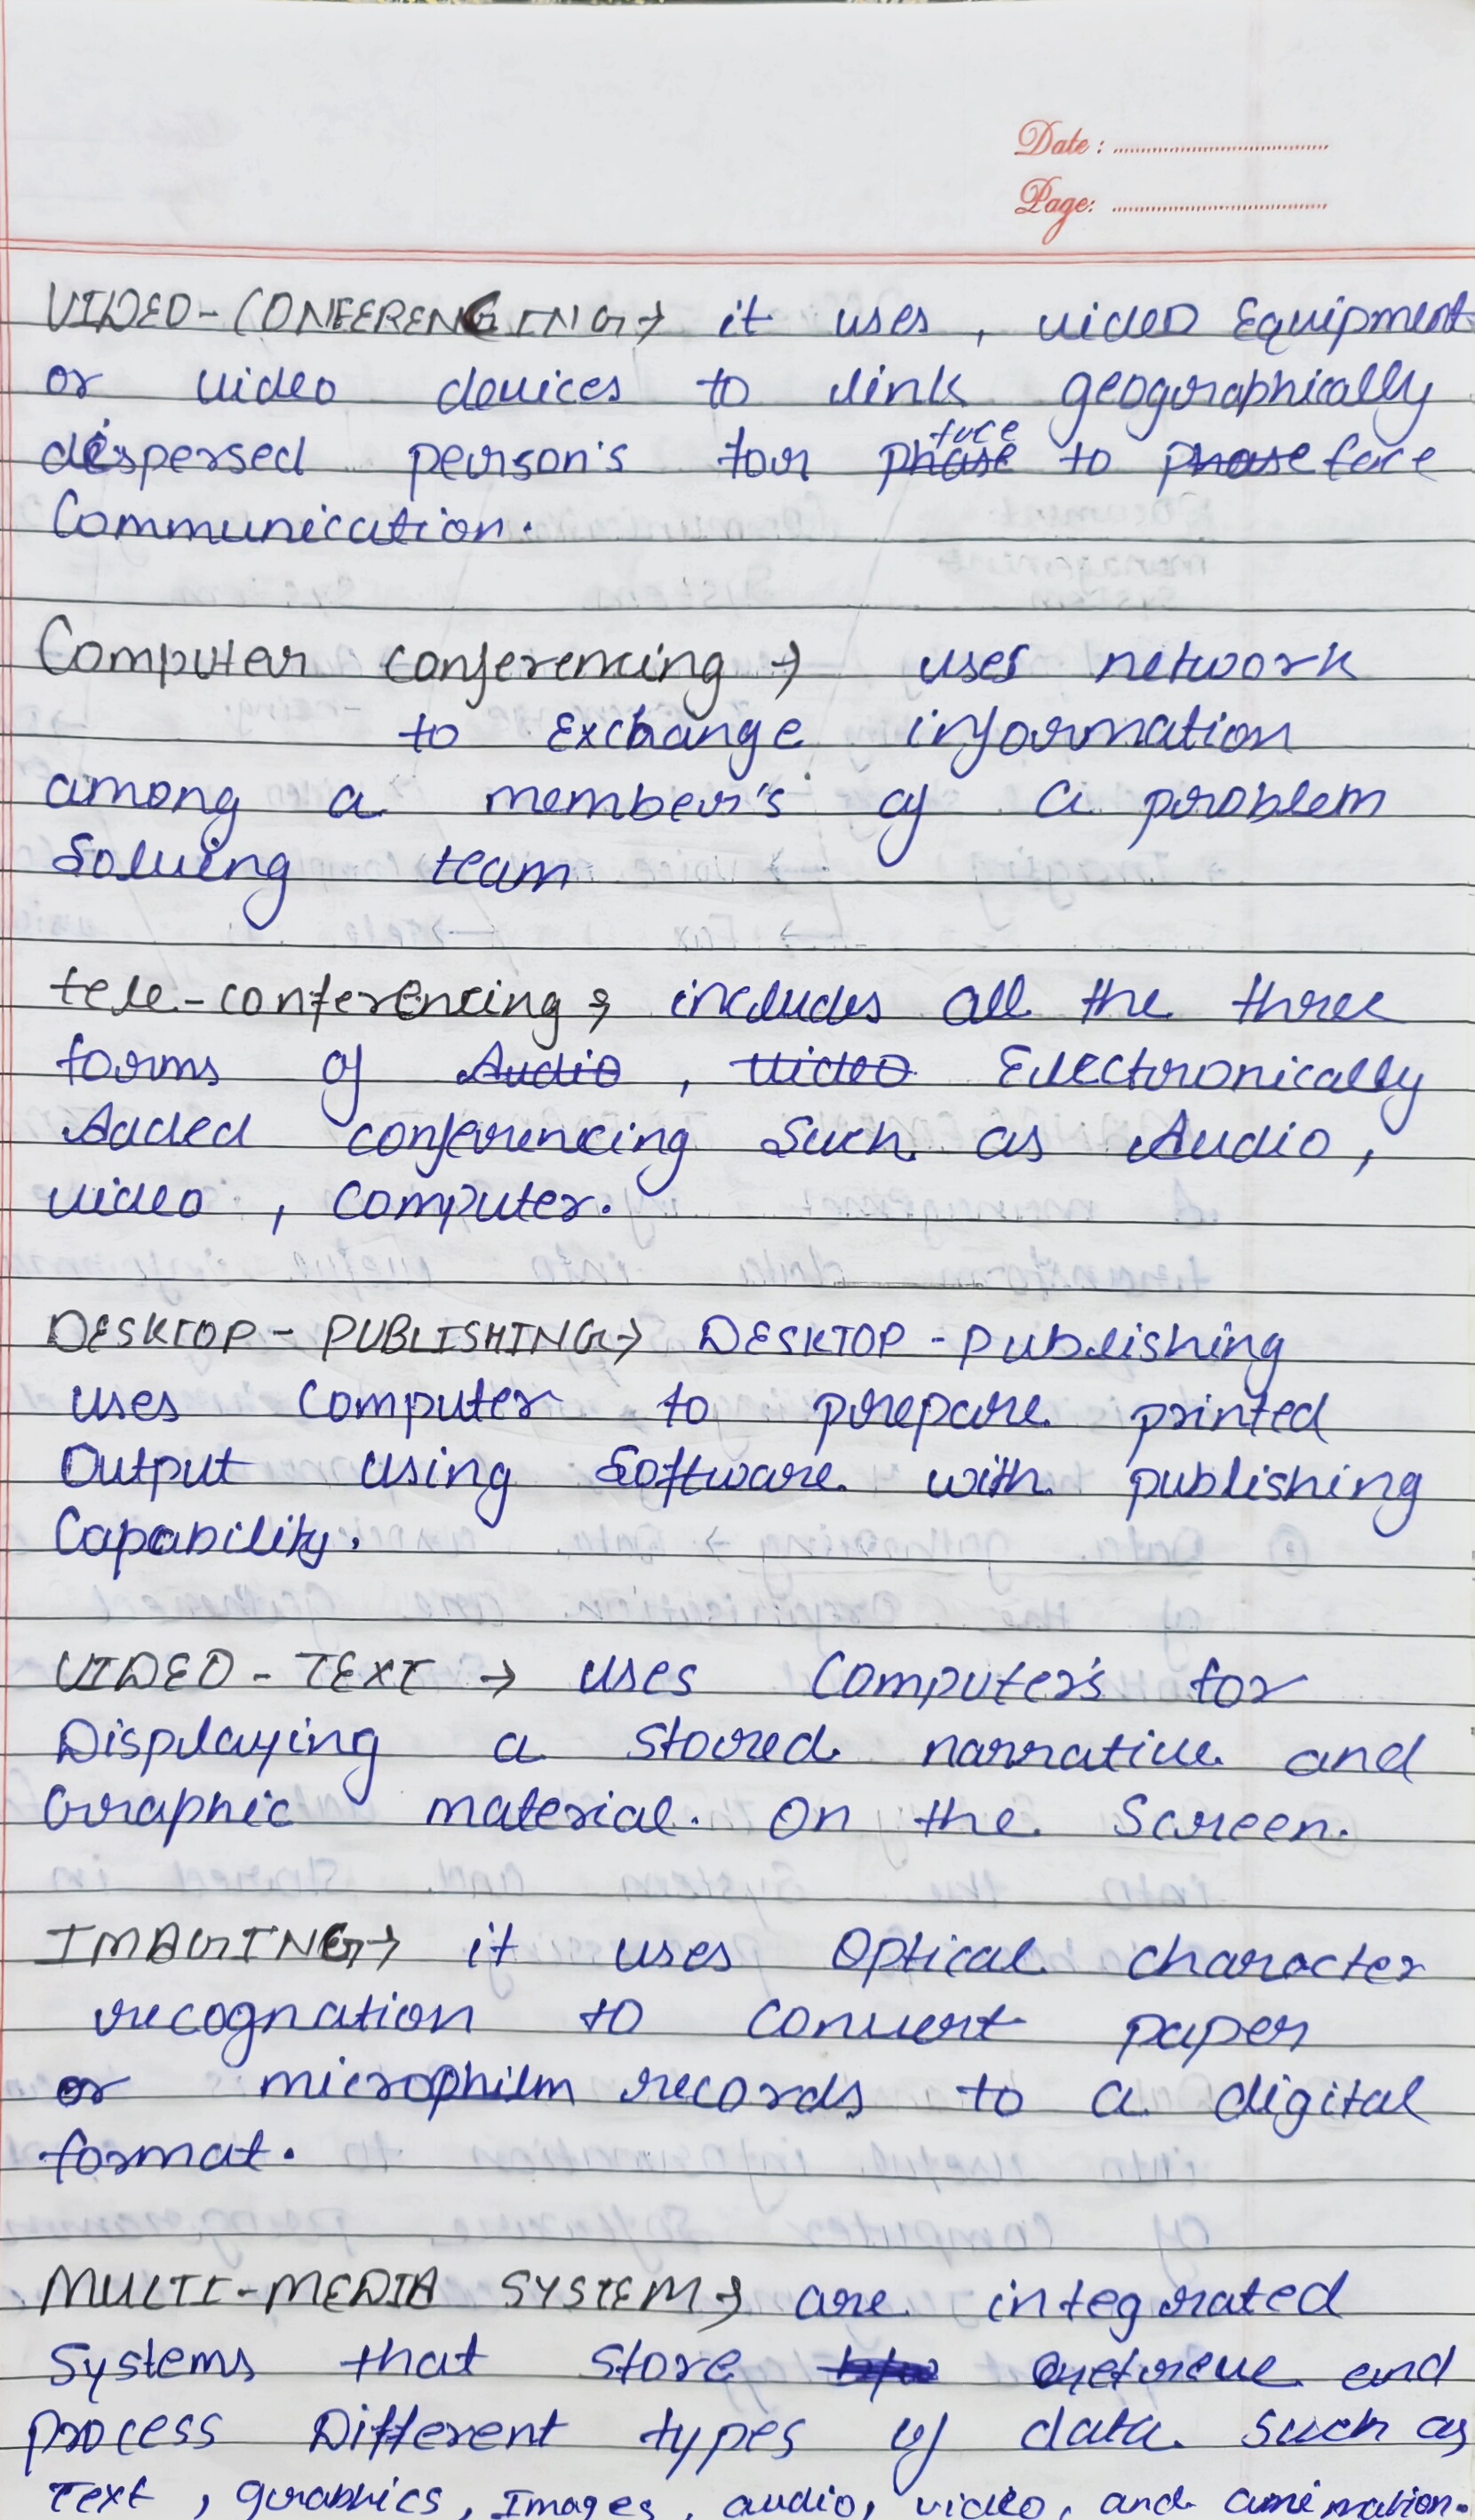 Date :
Page:
VIDEO-CONFERENCING → it uses , video Equipment
or video devices to link geographically
dispersed person's for ~~phase~~ face to ~~phase~~ face
Communication.
Computer conferencing → uses network
to Exchange information
among a member's of a problem
Solving team
tele-conferencing → includes all the three
forms of ~~Audio~~ , ~~Video~~ Electronically
Added conferencing Such as Audio ,
video , computer.
DESKTOP - PUBLISHING → DESKTOP - publishing
uses Computer to prepare printed
Output using Software with publishing
Capability.
VIDEO - TEXT → uses Computer's for
Displaying a stored narrative and
Graphic material. On the Screen.
IMAGING → it uses Optical character
recognation to Convert paper
or microphilm records to a digital
format.
MULTI-MEDIA SYSTEM → are integrated
Systems that store and
process Different types of data such as
Text , graphics, Images, audio, video, and animation.